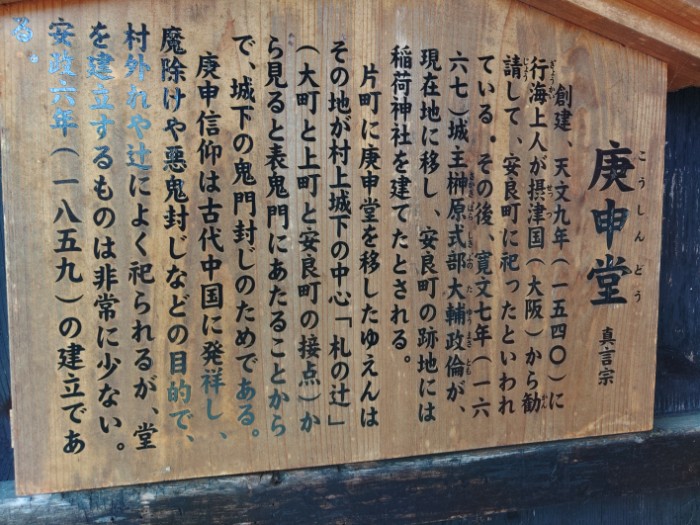 庚申堂 真言宗
こうしんどう
創建、天文九年(一五四〇)に
行海上人が摂津国(大阪)から勧
請して、安良町に祀ったといわれ
ている。その後、寛文七年(一六
六七)城主榊原式部大輔政倫が、
現在地に移し、安良町の跡地には
稲荷神社を建てたとされる。
片町に庚申堂を移したゆえんは
その地が村上城下の中心「札の辻」
(大町と上町と安良町の接点)か
ら見ると表鬼門にあたることから
で、城下の鬼門封じのためである。
庚申信仰は古代中国に発祥し、
魔除けや悪鬼封じなどの目的で、
村外れや辻によく祀られるが、堂
を建立するものは非常に少ない。
安政六年(一八五九)の建立であ
る。